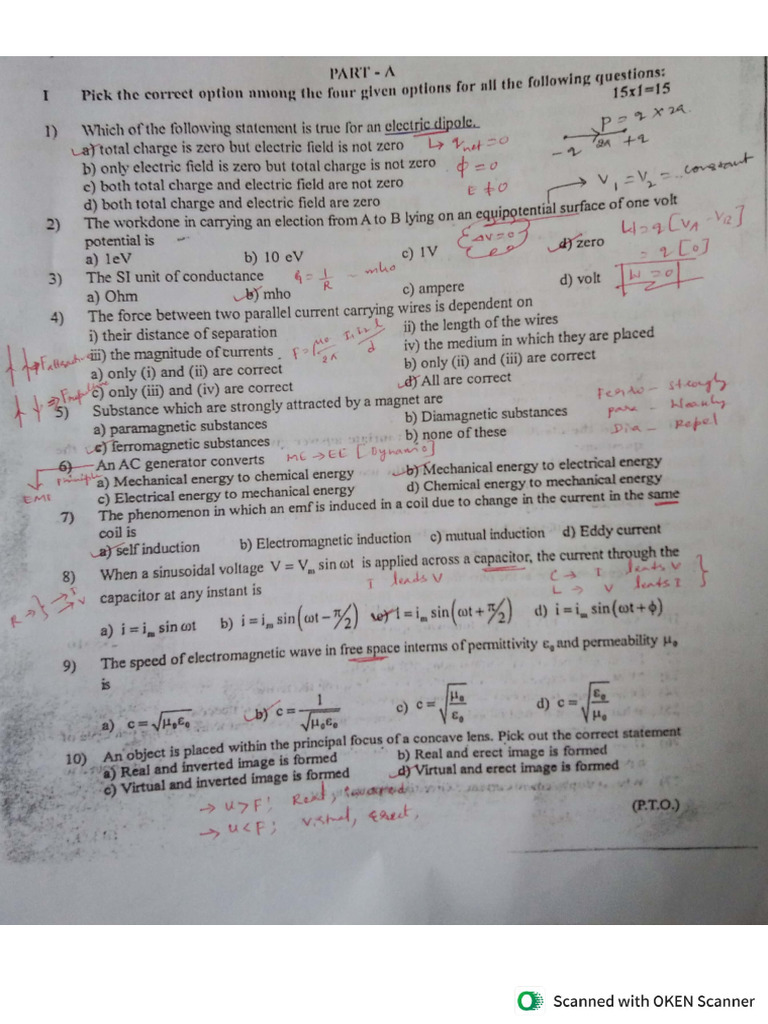 PART - A
I Pick the correct option among the four given options for all the following questions:
15x1=15
1) Which of the following statement is true for an electric dipole.
P = q x 2a
a) total charge is zero but electric field is not zero
↳ q net = 0
-q 2a +q
b) only electric field is zero but total charge is not zero
ϕ = 0
c) both total charge and electric field are not zero
E ≠ 0
→ V1 = V2 = .. constant
d) both total charge and electric field are zero
2) The workdone in carrying an election from A to B lying on an equipotential surface of one volt
potential is
{ΔV = 0}
W = q [VA - VB]
a) 1eV b) 10 eV c) 1V d) zero
= q [0]
3) The SI unit of conductance
G = 1/R - mho
W = 0
a) Ohm b) mho c) ampere d) volt
4) The force between two parallel current carrying wires is dependent on
i) their distance of separation ii) the length of the wires
iii) the magnitude of currents iv) the medium in which they are placed
F = μ0/2π I1 I2 L/d
a) only (i) and (ii) are correct b) only (ii) and (iii) are correct
c) only (iii) and (iv) are correct d) All are correct
5) Substance which are strongly attracted by a magnet are
Ferro - strongly
a) paramagnetic substances b) Diamagnetic substances
para - Weakly
c) ferromagnetic substances b) none of these
Dia - Repel
6) An AC generator converts
ME → EE [Dynamo]
Principle
EMI
a) Mechanical energy to chemical energy b) Mechanical energy to electrical energy
c) Electrical energy to mechanical energy d) Chemical energy to mechanical energy
7) The phenomenon in which an emf is induced in a coil due to change in the current in the same
coil is
a) self induction b) Electromagnetic induction c) mutual induction d) Eddy current
8) When a sinusoidal voltage V = Vm sin ωt is applied across a capacitor, the current through the
capacitor at any instant is
I leads V
C → I leads V
L → V leads I
R ⇒ } → I → V
a) i = im sin ωt b) i = im sin(ωt − π/2) c) i = im sin(ωt + π/2) d) i = im sin(ωt + ϕ)
9) The speed of electromagnetic wave in free space interms of permittivity ε0 and permeability μ0
is
a) c = √μ0ε0 b) c = 1/√μ0ε0 c) c = √μ0/ε0 d) c = √ε0/μ0
10) An object is placed within the principal focus of a concave lens. Pick out the correct statement
a) Real and inverted image is formed b) Real and erect image is formed
c) Virtual and inverted image is formed d) Virtual and erect image is formed
→ u > F; Real, inverted
(P.T.O.)
→ u < F; virtual, erect,
Scanned with OKEN Scanner